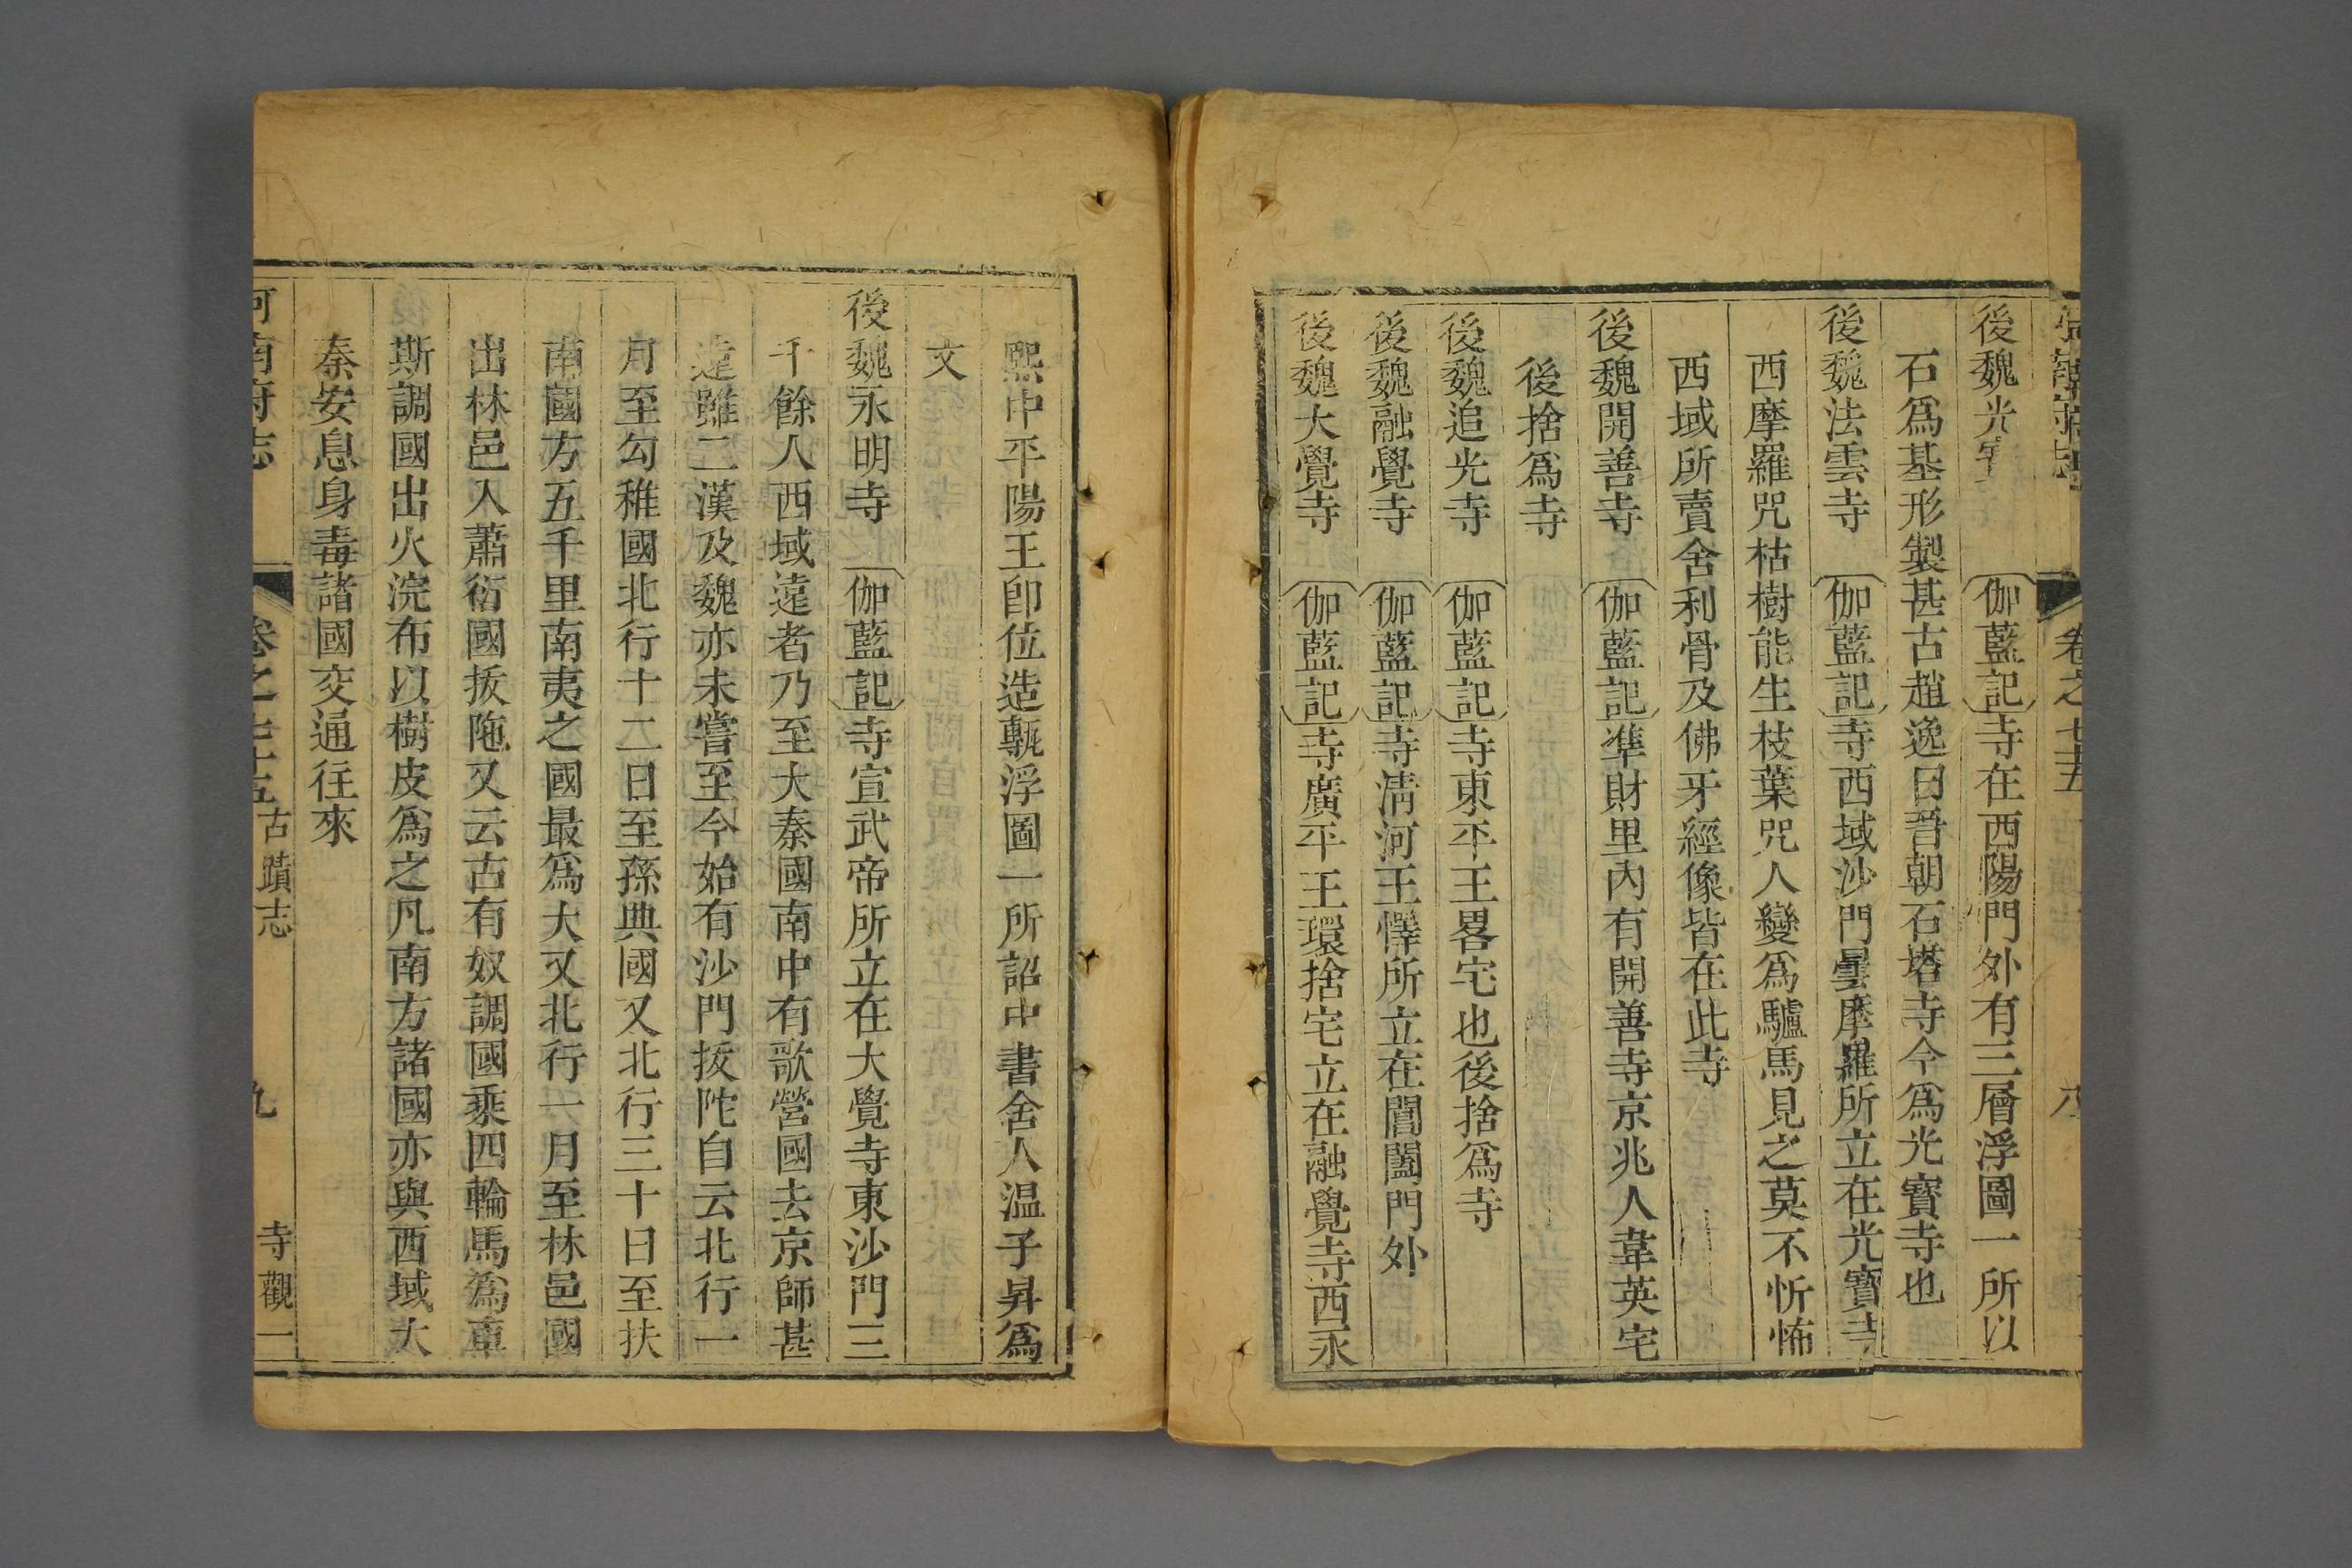 卷之七十五
八
後魏光寶寺 伽藍記寺在西陽門外有三層浮圖一所以
石爲基形製甚古趙逸曰晉朝石塔寺今爲光寶寺也
後魏法雲寺 伽藍記寺西域沙門曇摩羅所立在光寶寺
西摩羅咒枯樹能生枝葉咒人變爲驢馬見之莫不忻怖
西域所賣舍利骨及佛牙經像皆在此寺
後魏開善寺 伽藍記準財里內有開善寺京兆人韋英宅
後捨爲寺
後魏追光寺 伽藍記寺東平王畧宅也後捨爲寺
後魏融覺寺 伽藍記寺淸河王懌所立在閶闔門外
後魏大覺寺 伽藍記寺廣平王環捨宅立在融覺寺西永
熙中平陽王卽位造甎浮圖一所詔中書舍人温子昇爲
文
後魏永明寺 伽藍記寺宣武帝所立在大覺寺東沙門三
千餘人西域遠者乃至大秦國南中有歌營國去京師甚
遠雖二漢及魏亦未嘗至今始有沙門抜陀自云北行一
月至勾稚國北行十二日至孫典國又北行三十日至扶
南國方五千里南夷之國最爲大又北行一月至林邑國
出林邑入蕭衍國抜陁又云古有奴調國乘四輪馬爲車
斯調國出火浣布以樹皮爲之凡南方諸國亦與西域大
秦安息身毒諸國交通往來
河南府志 卷之七十五 古蹟志 九 寺觀一